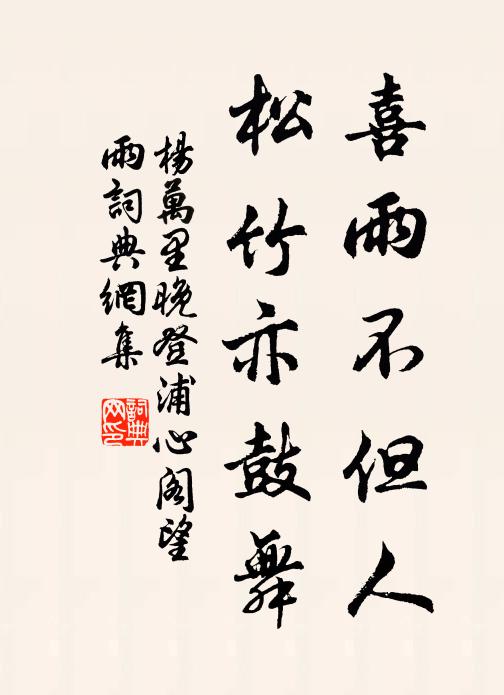 喜雨不但人
松竹亦鼓舞
楊萬里晚登浦心閣望
雨詞典網集
詞典網印